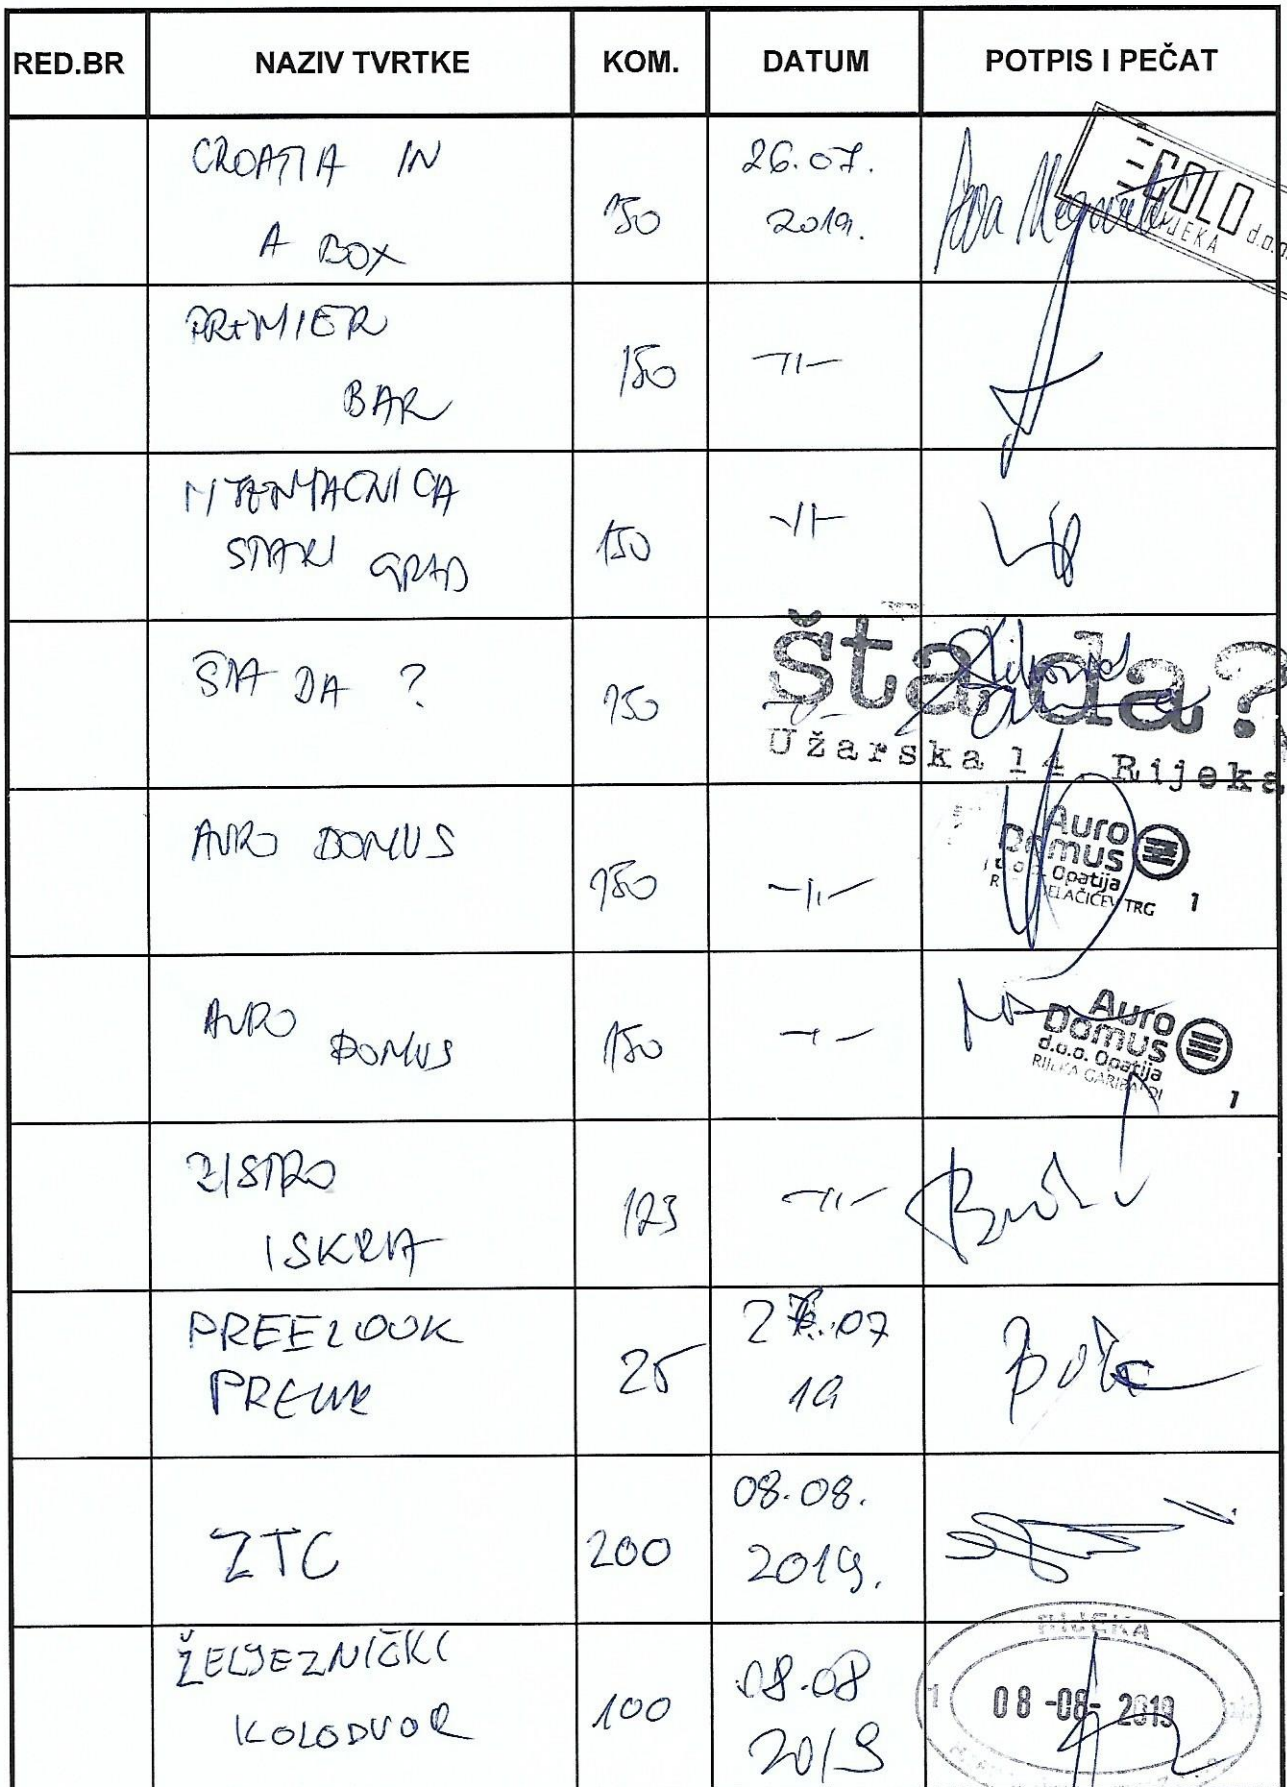 RED.BR NAZIV TVRTKE KOM. DATUM POTPIS I PEČAT
CROATIA IN
A BOX
150
26.07.
2019.
COLO d.o.o.
RIJEKA
PREMIER
BAR
150
-11-
STARI GRAD
150
-11-
ŠTA DA ?
150
šta da?
Užarska 14 Rijeka
AURO DOMUS
150
-11-
Auro
Domus
d.o.o. Opatija
JELAČIĆEV TRG 1
AURO
DOMUS
150
-11-
Auro
Domus
d.o.o. Opatija
RIJEKA GARIBALDI
1
BISTRO
ISKRA
123
-11-
PREELOOK
PRELUK
25
.07
19
ZTC
200
08.08.
2019.
ŽELJEZNIČKI
KOLODVOR
100
08.08
2019
RIJEKA
1
08-08-2019